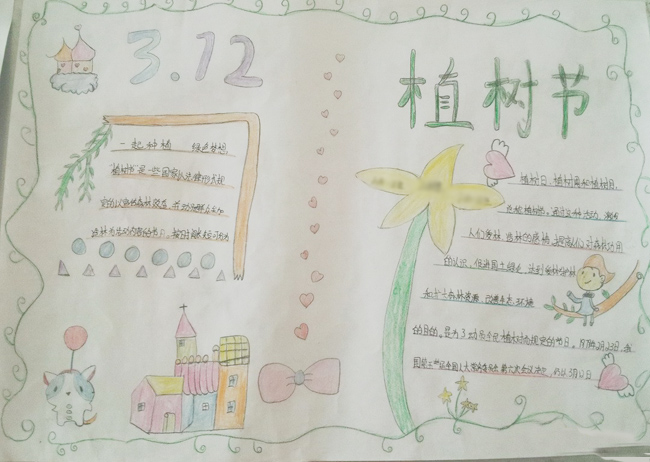 3.12
植树节
一起种植 绿色梦想
"植树节"是一些国家以法律形式规
定的以宣传森林效益，并动员群众参加
造林为活动内容的节日。按时间长短可分为
植树日、植树周和植树月，
总称植树节。通过这种活动，激发
人们爱林、造林的感情，提高人们对森林功用
的认识，促进国土绿化，达到爱林护林
和扩大森林资源、改善生态环境
的目的。是为了动员全民植树而规定的节日。1979年2月23日，我
国第五届全国人大常务委员会第六次会议决定，3月12日